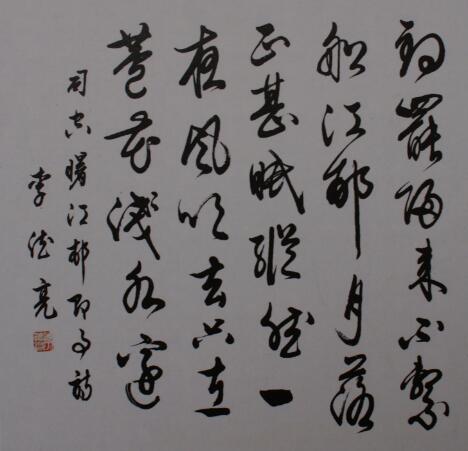 釣罷歸來不繫
船江邨月落
正甚眠縱然一
夜風吹去只在
蘆花淺水邊
司空曙江邨即事詩
李德亮